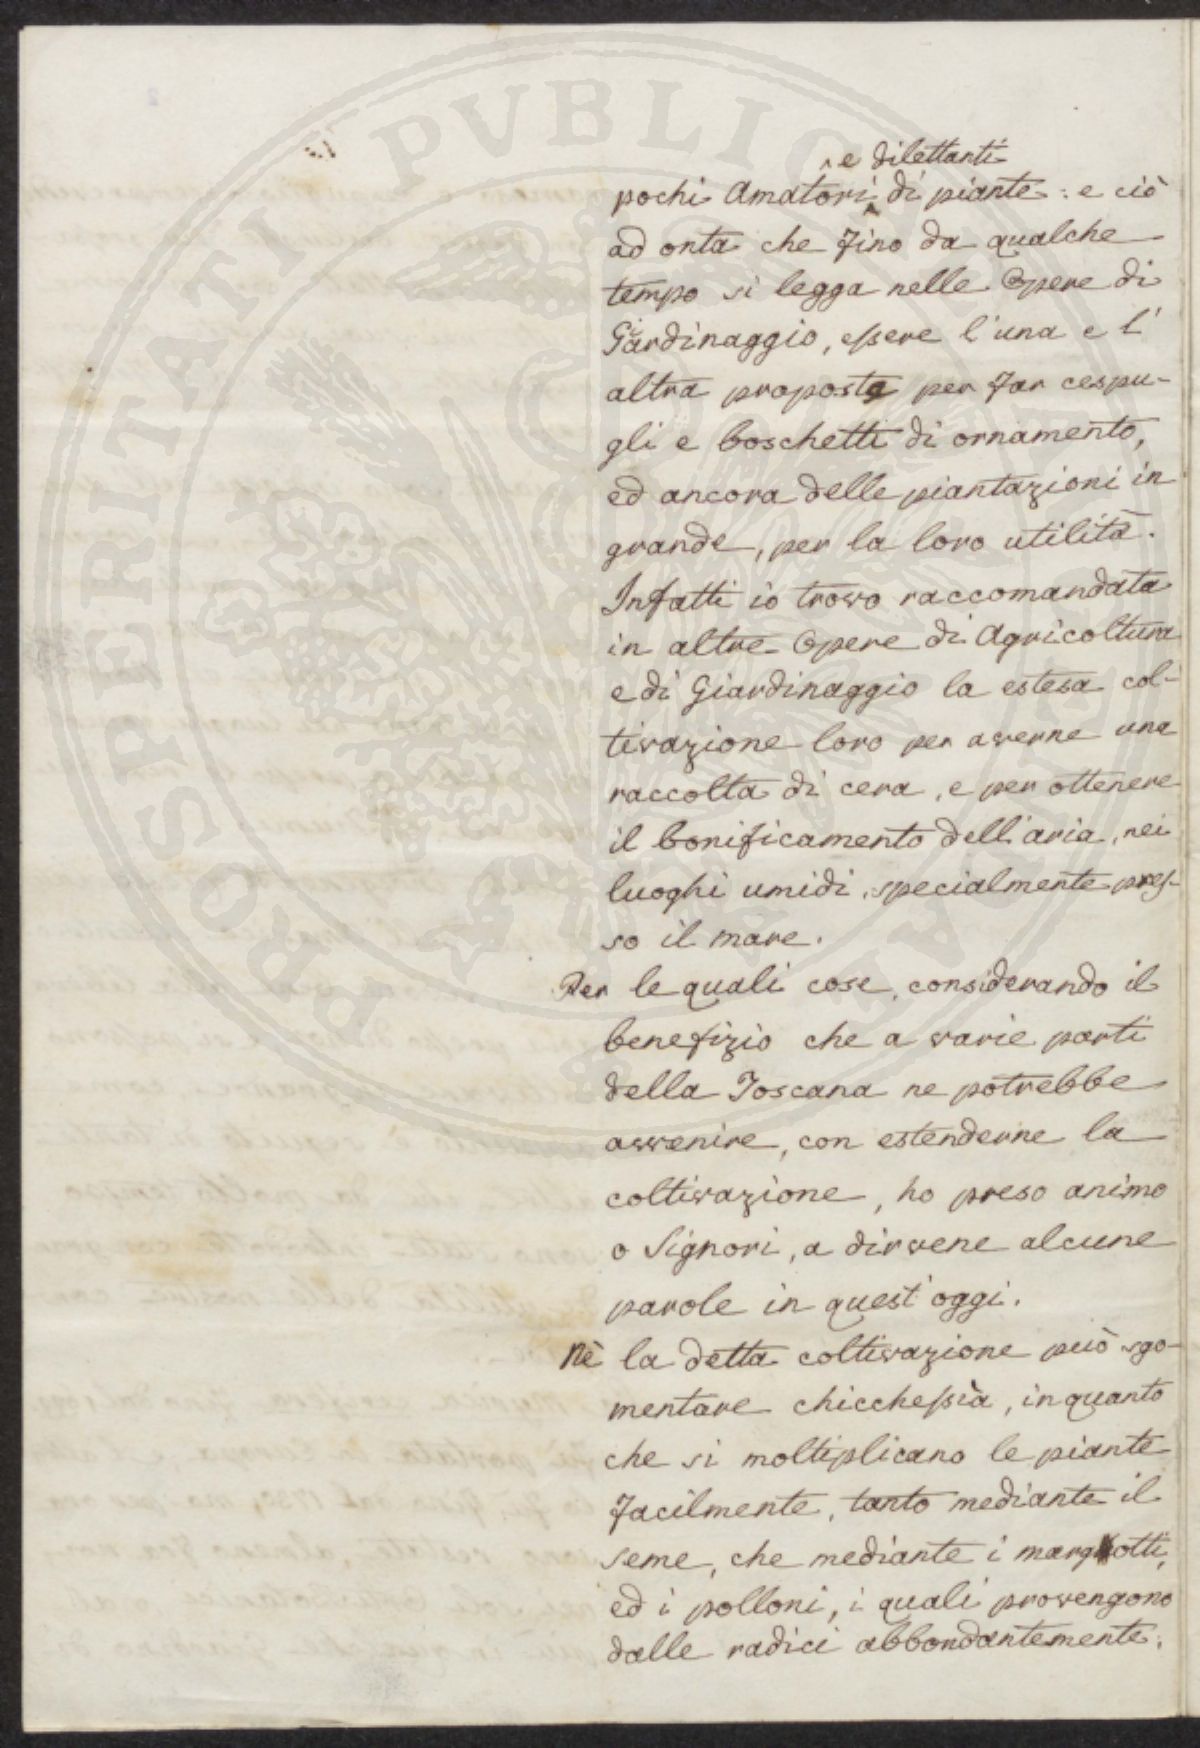 PROSPERITATI PUBLICAE
^ e dilettanti
pochi Amatori ^ di piante: e ciò
ad onta che fino da qualche
tempo si legga nelle Opere di
Giardinaggio, essere l'una e l'
altra proposta per far cespu-
gli e boschetti di ornamento,
ed ancora delle piantazioni in
grande, per la loro utilità.
Infatti io trovo raccomandata
in altre Opere di Agricoltura
e di Giardinaggio la estesa col-
tivazione loro per averne una
raccolta di cera, e per ottenere
il bonificamento dell'aria, nei
luoghi umidi, specialmente pres-
so il mare.
Per le quali cose, considerando il
benefizio che a varie parti
della Toscana ne potrebbe
avvenire, con estenderne la
coltivazione, ho preso animo
o Signori, a dirvene alcune
parole in quest'oggi.
Nè la detta coltivazione può sgo-
mentare chicchessia, in quanto
che si moltiplicano le piante
facilmente, tanto mediante il
seme, che mediante i margotti,
ed i polloni, i quali provengono
dalle radici abbondantemente.